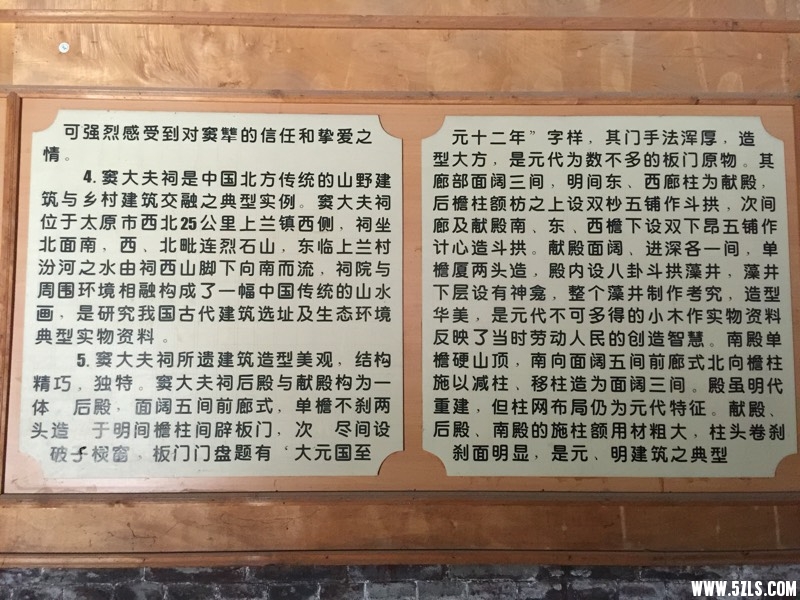 可强烈感受到对窦犨的信任和挚爱之
情。
4.窦大夫祠是中国北方传统的山野建
筑与乡村建筑交融之典型实例。窦大夫祠
位于太原市西北25公里上兰镇西侧,祠坐
北面南,西、北毗连烈石山,东临上兰村
汾河之水由祠西山脚下向南而流,祠院与
周围环境相融构成了一幅中国传统的山水
画,是研究我国古代建筑选址及生态环境
典型实物资料。
5.窦大夫祠所遗建筑造型美观,结构
精巧,独特。窦大夫祠后殿与献殿构为一
体 后殿,面阔五间前廊式,单檐不刹两
头造 于明间檐柱间辟板门,次 尽间设
破子棂窗,板门门盘题有“大元国至
元十二年”字样,其门手法浑厚,造
型大方,是元代为数不多的板门原物。其
廊部面阔三间,明间东、西廊柱为献殿,
后檐柱额枋之上设双杪五铺作斗拱,次间
廊及献殿南、东、西檐下设双下昂五铺作
计心造斗拱。献殿面阔、进深各一间,单
檐厦两头造,殿内设八卦斗拱藻井,藻井
下层设有神龛,整个藻井制作考究,造型
华美,是元代不可多得的小木作实物资料
反映了当时劳动人民的创造智慧。南殿单
檐硬山顶,南向面阔五间前廊式北向檐柱
施以减柱、移柱造为面阔三间。殿虽明代
重建,但柱网布局仍为元代特征。献殿、
后殿、南殿的施柱额用材粗大,柱头卷刹
刹面明显,是元、明建筑之典型
WWW.5ZLS.COM